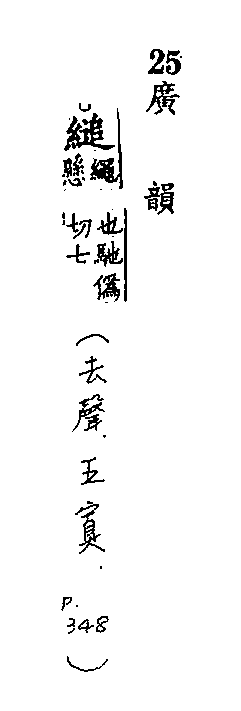 25廣韻
縋繩懸也馳僞切七(去聲.五寘.p.348)